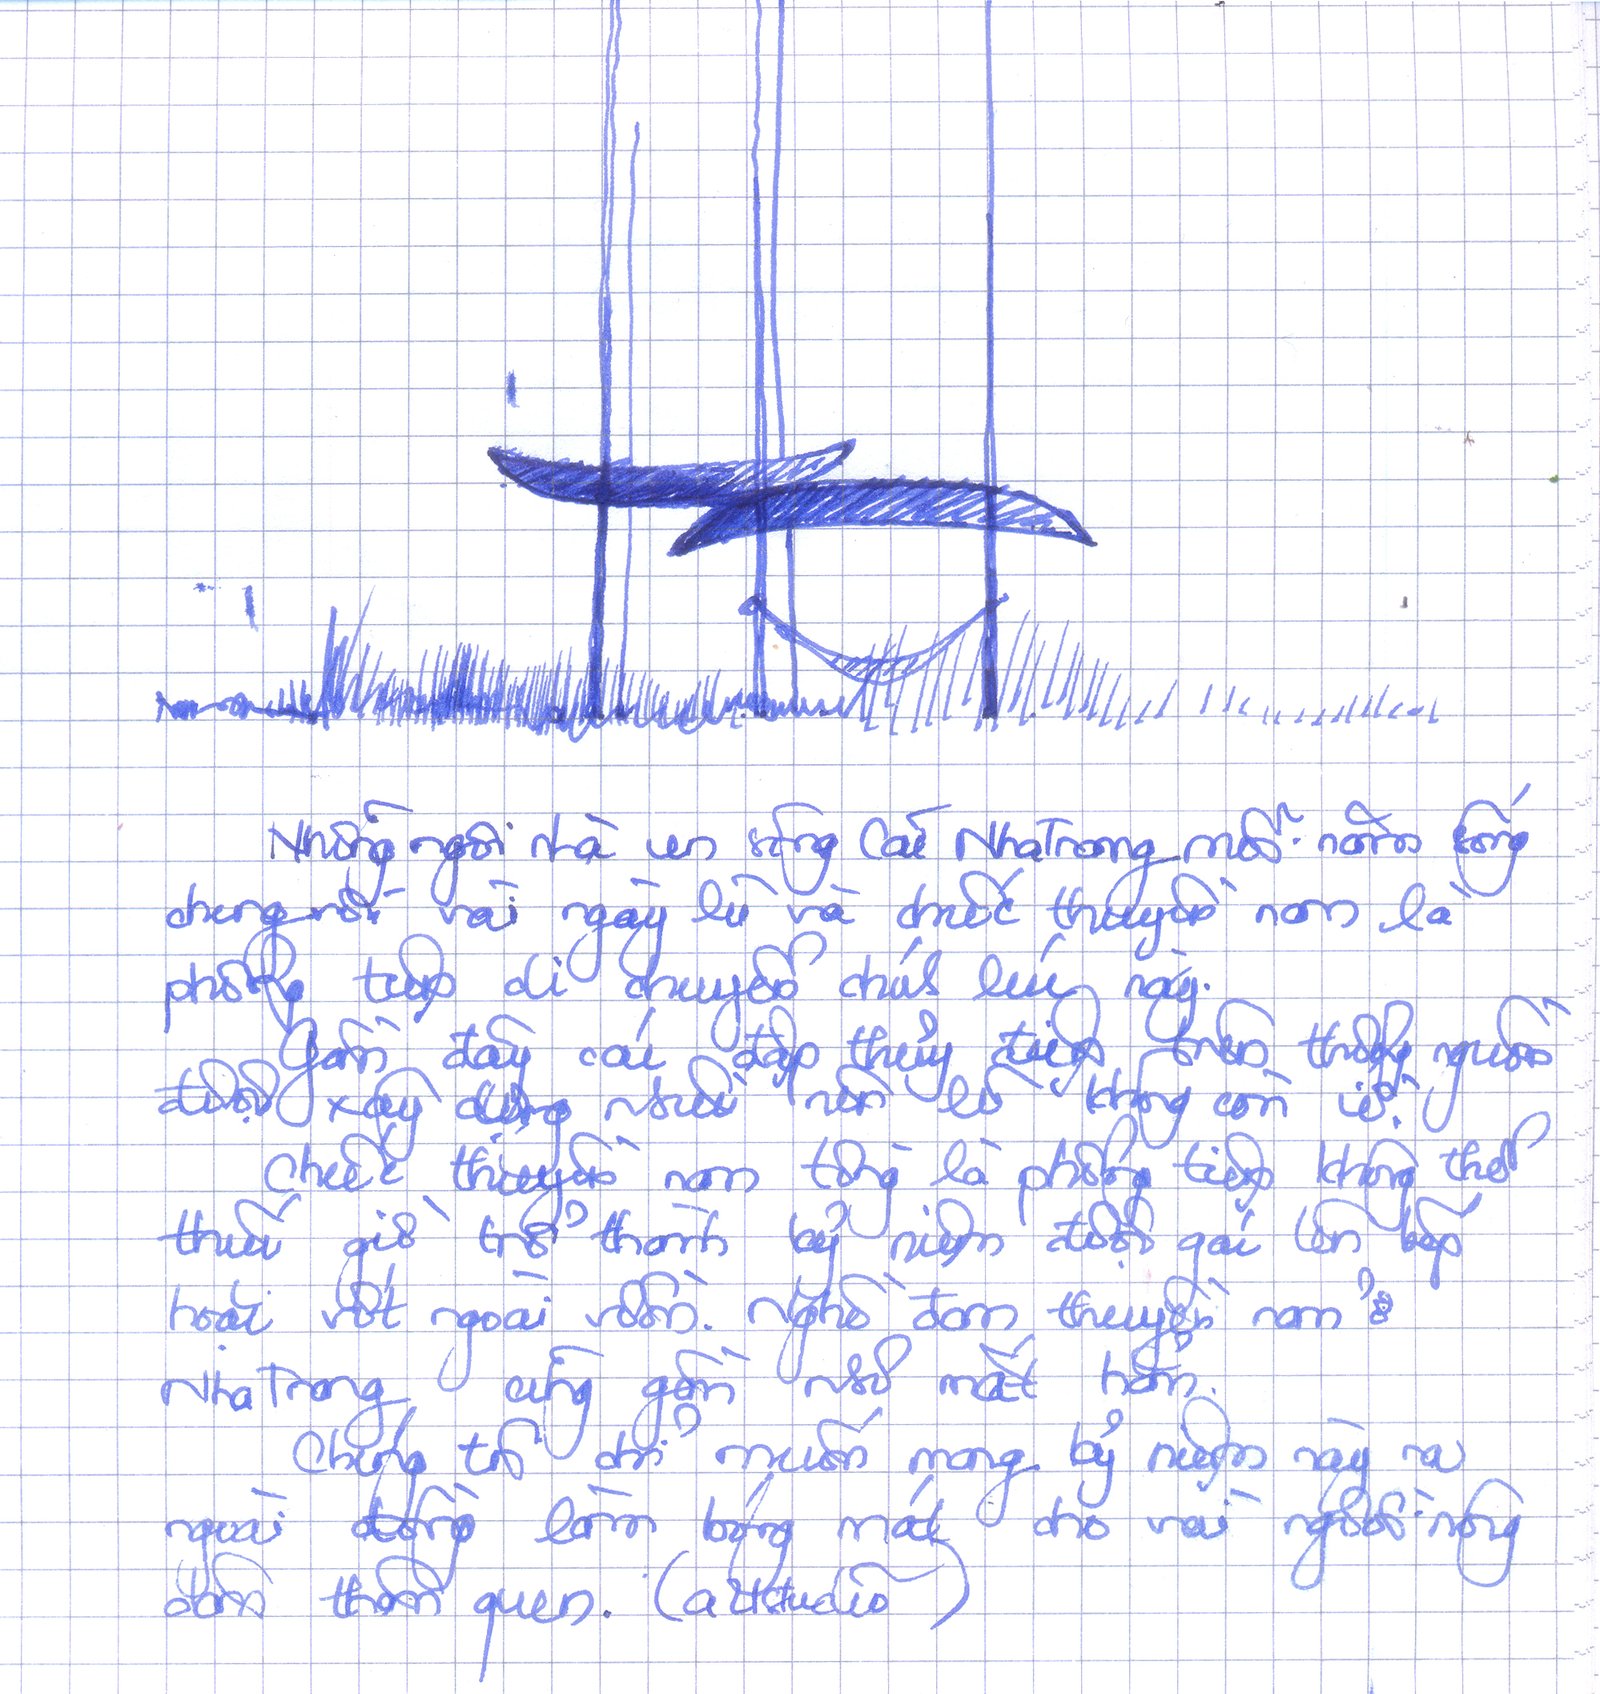 Những ngôi nhà ven sông Cái NhaTrang mỗi năm sống
chung với vài ngày lũ và chiếc thuyền nan là
phương tiện di chuyển chính lúc này.
Gần đây các đập thủy điện trên thượng nguồn
được xây dựng nhiều nên lũ không còn về.
Chiếc thuyền nan từng là phương tiện không thể
thiếu giờ trở thành kỷ niệm được gác lên bếp
hoặc vứt ngoài vườn. Nghề đan thuyền nan ở
NhaTrang cũng gần như mất hẳn.
Chúng tôi chỉ muốn mang kỷ niệm này ra
ngoài đồng làm bóng mát cho vài người nông
dân thân quen. (a21studio)